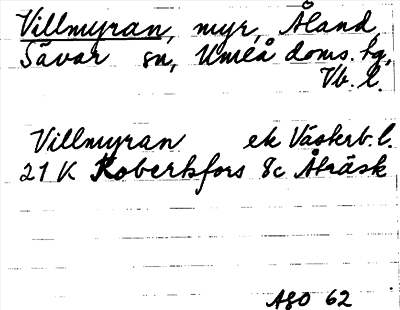 Villmyran, myr, Åland,
Sävar sn, Umeå doms. tg,
Vb. l.
Villmyran ek Västerb. l.
21 K Robertsfors 8c Åträsk
ASO 62